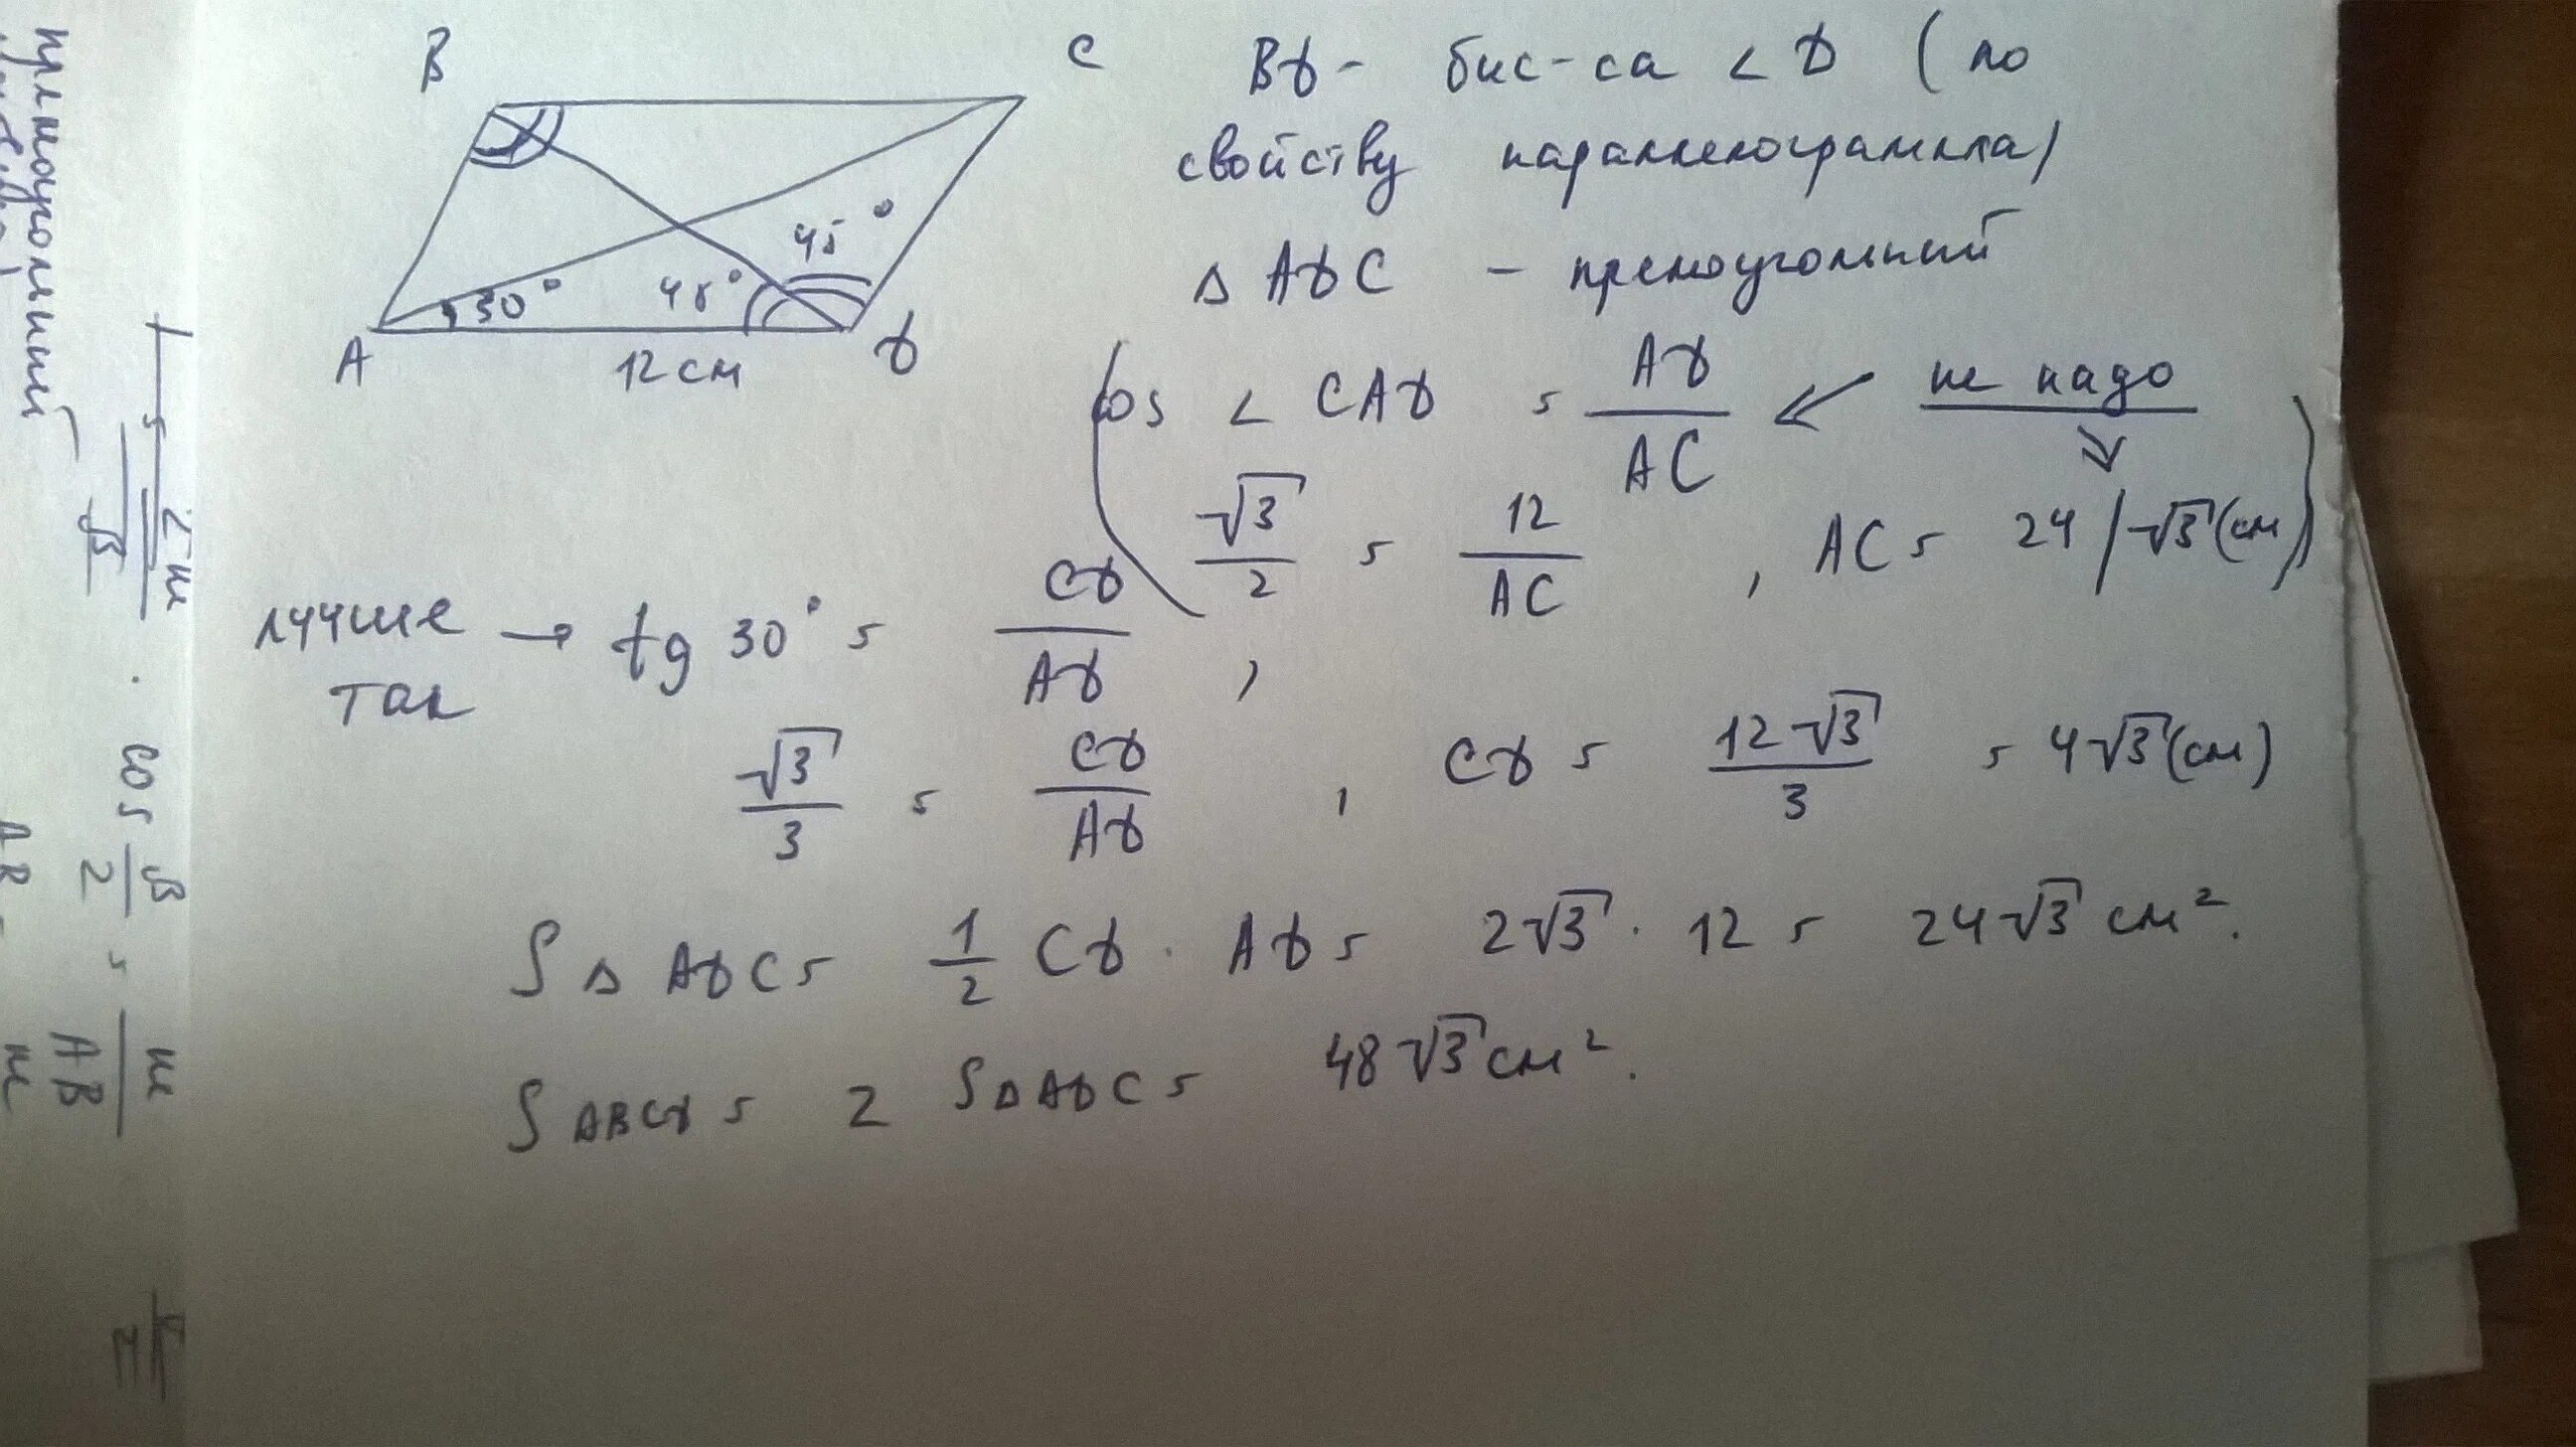 B
C
30°
45°
45°
A
12 см
D
BD - бис-са < D (по
свойству параллелограмма)
Δ ADC - премоугольний
(cos < CAD = AD / AC ← не надо
√3 / 2 = 12 / AC , AC = 24/√3 (см))
лучше так → tg 30° = CD / AD ,
√3 / 3 = CD / AD , CD = 12√3 / 3 = 4√3 (см)
S Δ ADC = 1/2 CD · AD = 2√3 · 12 = 24√3 см².
S ABCD = 2 SΔADC = 48√3 см².
прямоугольний
cos
√3 / 2
AB